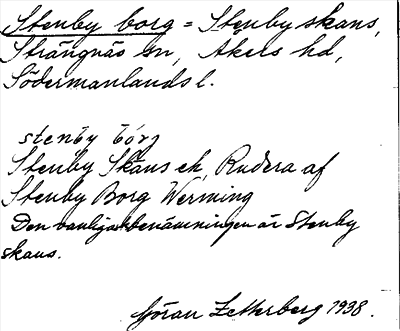 Stenby borg = Stenby skans,
Strängnäs sn, Åkers hd,
Södermanlands l.
stenby börj
Stenby Skans ek, Rudera af
Stenby Borg Werming
Den vanliga benämningen är Stenby
skans.
Göran Zetterberg 1938.